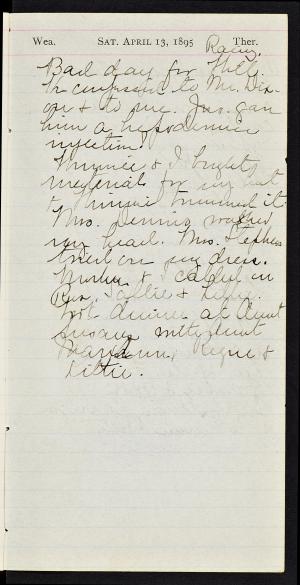 Wea. SAT. APRIL 13, 1895 Ther.
Rainy.
Bad day for Phil.
He confessed to Mr. Dix-
on & to me. Jno. gave
him a hypodermic
injection.
Minnie & I bought
materials for my hat
& Minnie trimmed it.
Mrs. Dennis washed
my head. Mrs. Stephens
tried on my dress.
Mother & I called on
Sallie &
Got dinner at Aunt
Susan's with Aunt
&